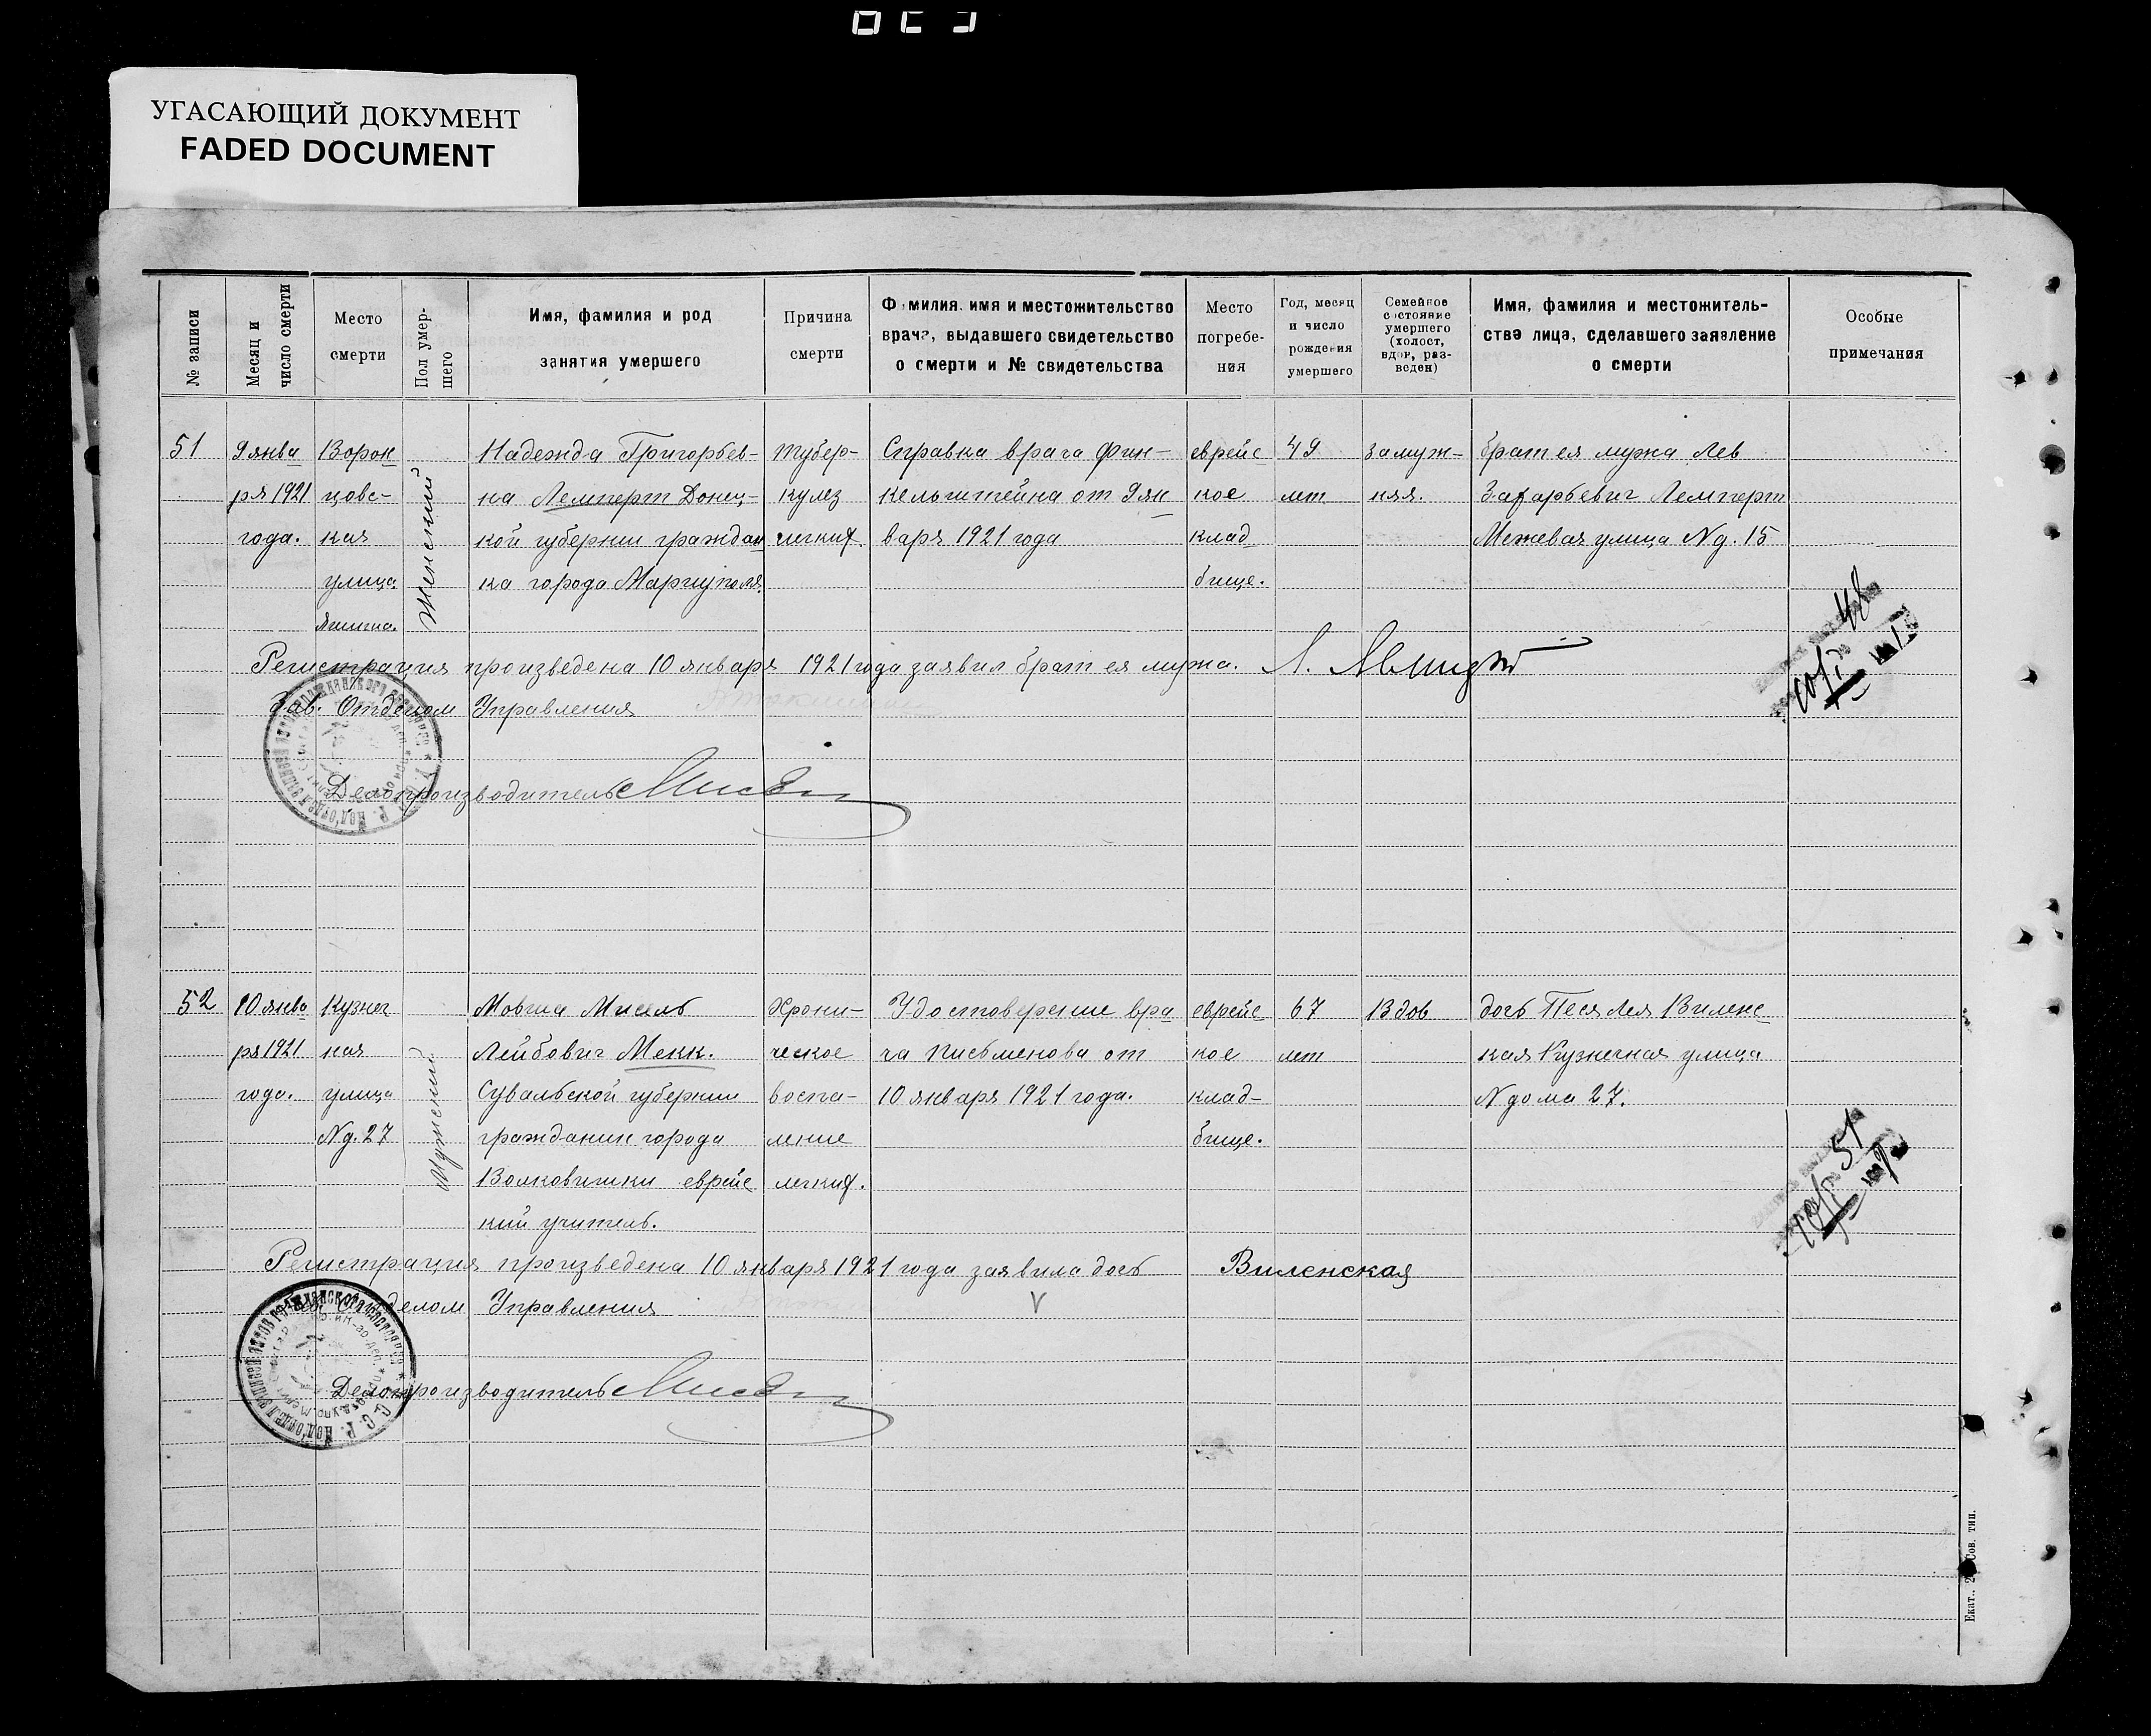 УГАСАЮЩИЙ ДОКУМЕНТ
FADED DOCUMENT
№ записи
Месяц и
число смерти
Место
смерти
Пол умер-
шего
Имя, фамилия и род
занятия умершего
Причина
смерти
Фамилия, имя и местожительство
врача, выдавшего свидетельство
о смерти и № свидетельства
Место
погребе-
ния
Год, месяц
и число
рождения
умершего
Семейное
состояние
умершего
(холост,
вдов, раз-
веден)
Имя, фамилия и местожитель-
ства лица, сделавшего заявление
о смерти
Особые
примечания
51
9 янва
ря 1921
года.
Ворон
цовс-
кая
улица
Женский
Надежда Григорьев-
на Лемперт Донец-
кой губернии граждан
ка города Мариуполя.
тубер-
кулез
легких.
Справка врача Фин-
кельштейна от 9 ян
варя 1921 года
еврейс
кое
клад
бище.
49
лет
замуж-
няя.
брат ея мужа Лев
Захарьевич Лемперт
Межевая улица № д. 15
48
10/I 1921
Регистрация произведена 10 января 1921 года заявил брат ея мужа.
Зав. Отделом Управления
Делопроизводитель
52
10 янва
ря 1921
года.
Кузнеч
ная
улица
№ д. 27
Мужской
Мовша Мисель
Лейбович Мекк.
Сувальской губернии
гражданин города
Волковишки еврейс
кий учитель.
Хрони-
ческое
воспа-
ление
легких.
Удостоверение вра
ча Письменова от
10 января 1921 года.
еврейс
кое
клад-
бище.
67
лет
Вдов
дочь Песя Лея Виленс
кая Кузнечная улица
№ дома 27.
51
10/I
Регистрация произведена 10 января 1921 года заявила дочь Виленская
Зав. Отделом Управления
Делопроизводитель
Екат. 2 Сов. тип.